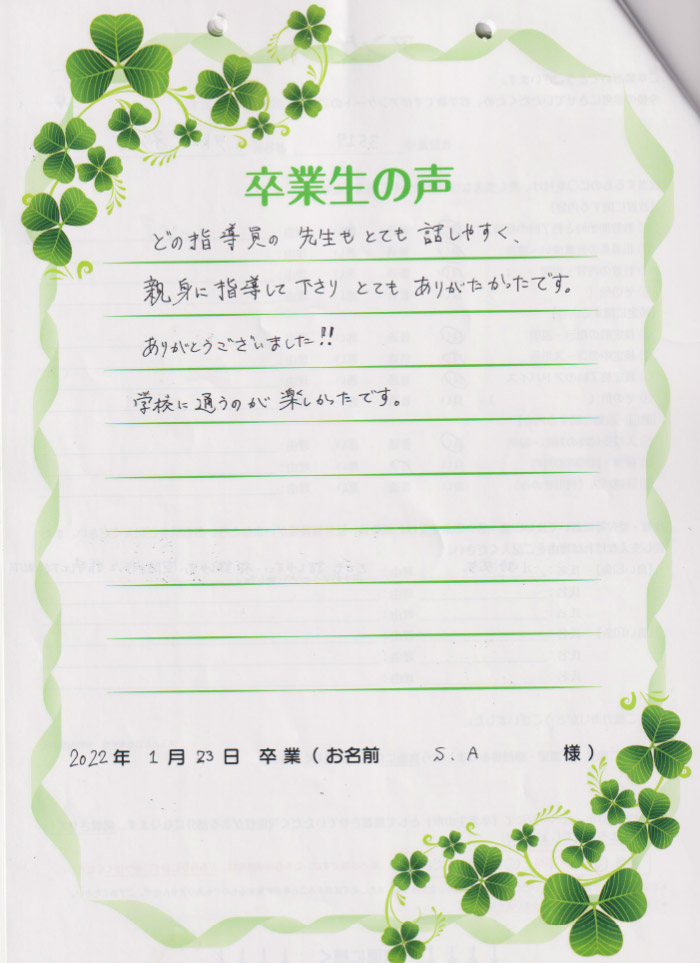 卒業生の声
どの指導員の 先生も とても 話しやすく、
親身に指導して下さり とても ありがたかったです。
ありがとうございました!!
学校に通うのが 楽しかったです。
2022年 1月 23日 卒業(お名前 S.A 様)